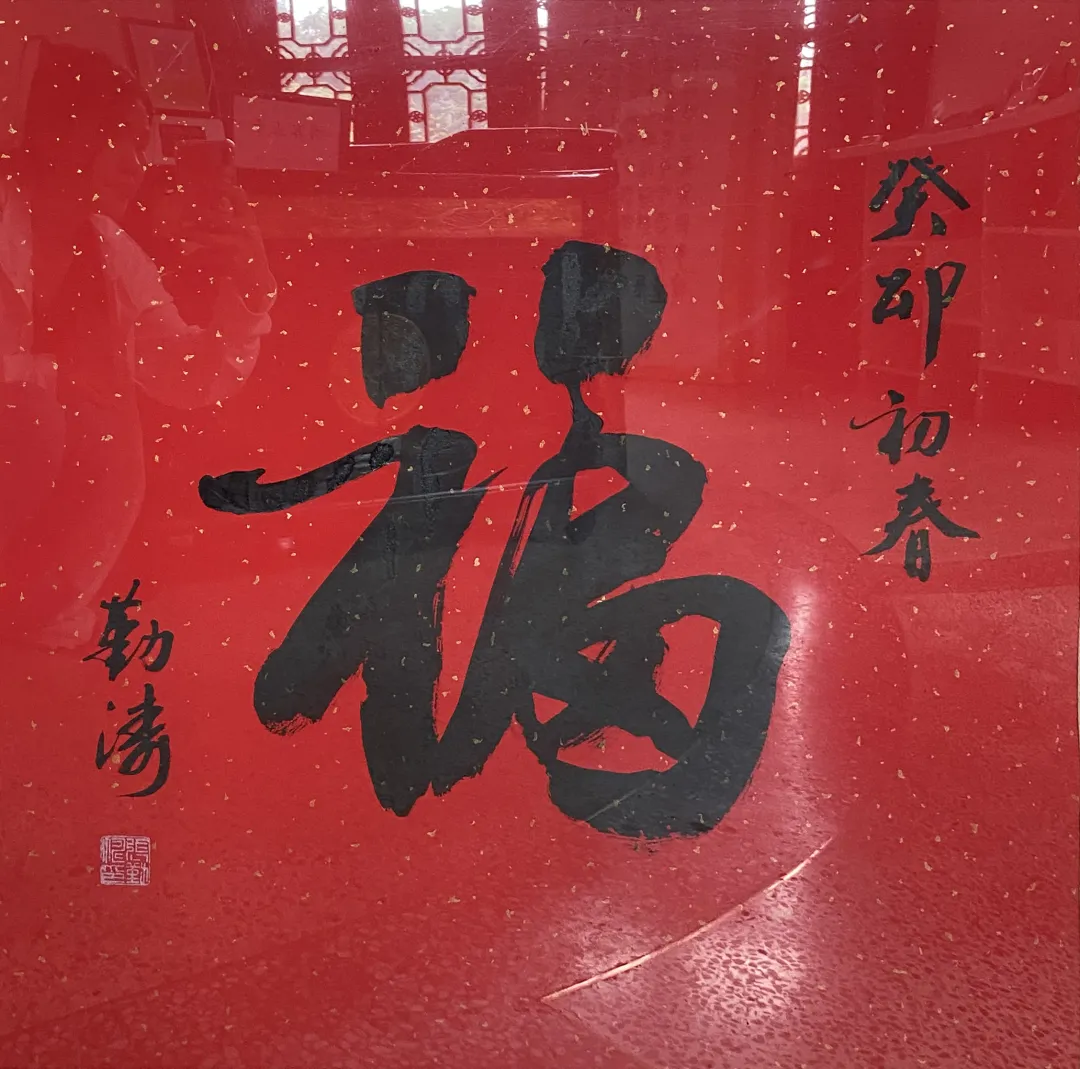 癸卯初春
福
勤涛